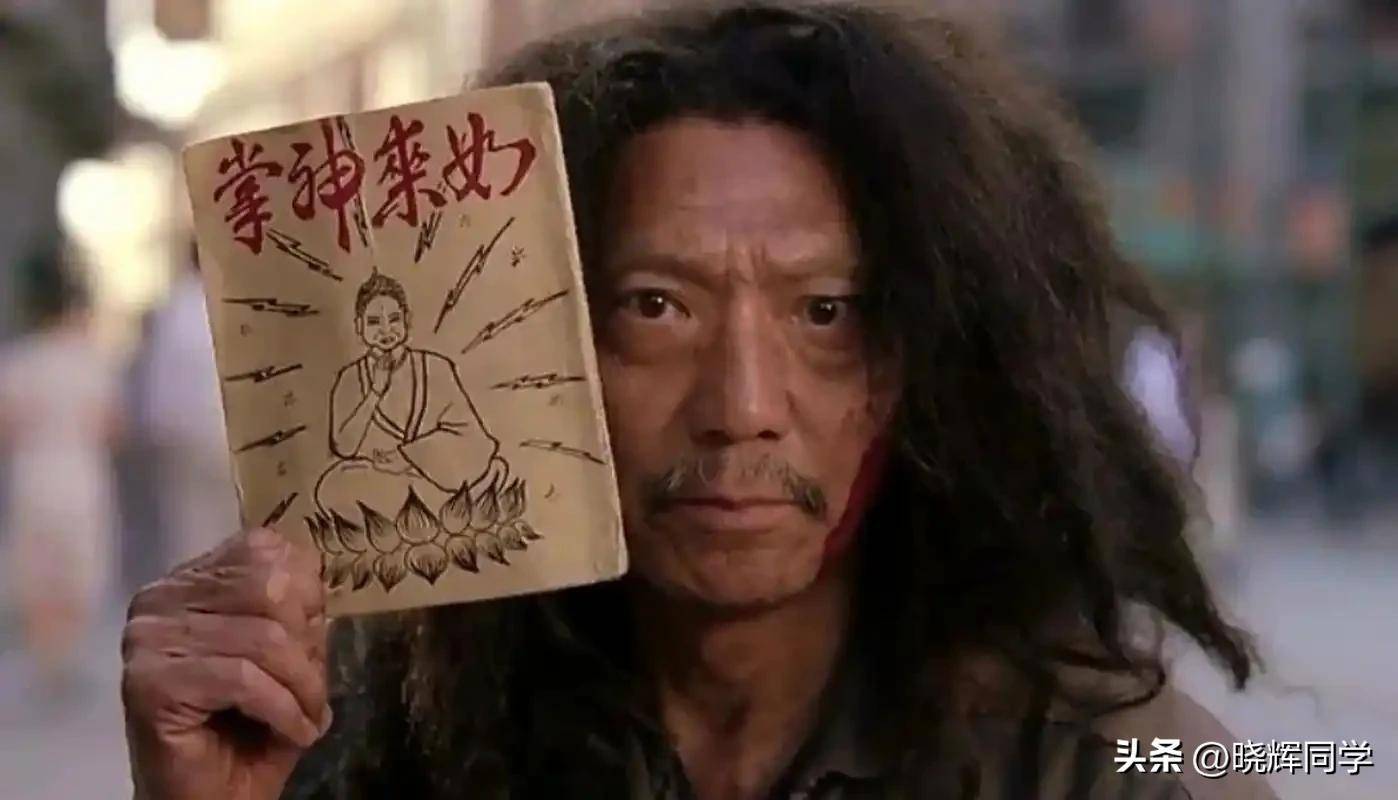 如來神掌
头条 @晓辉同学